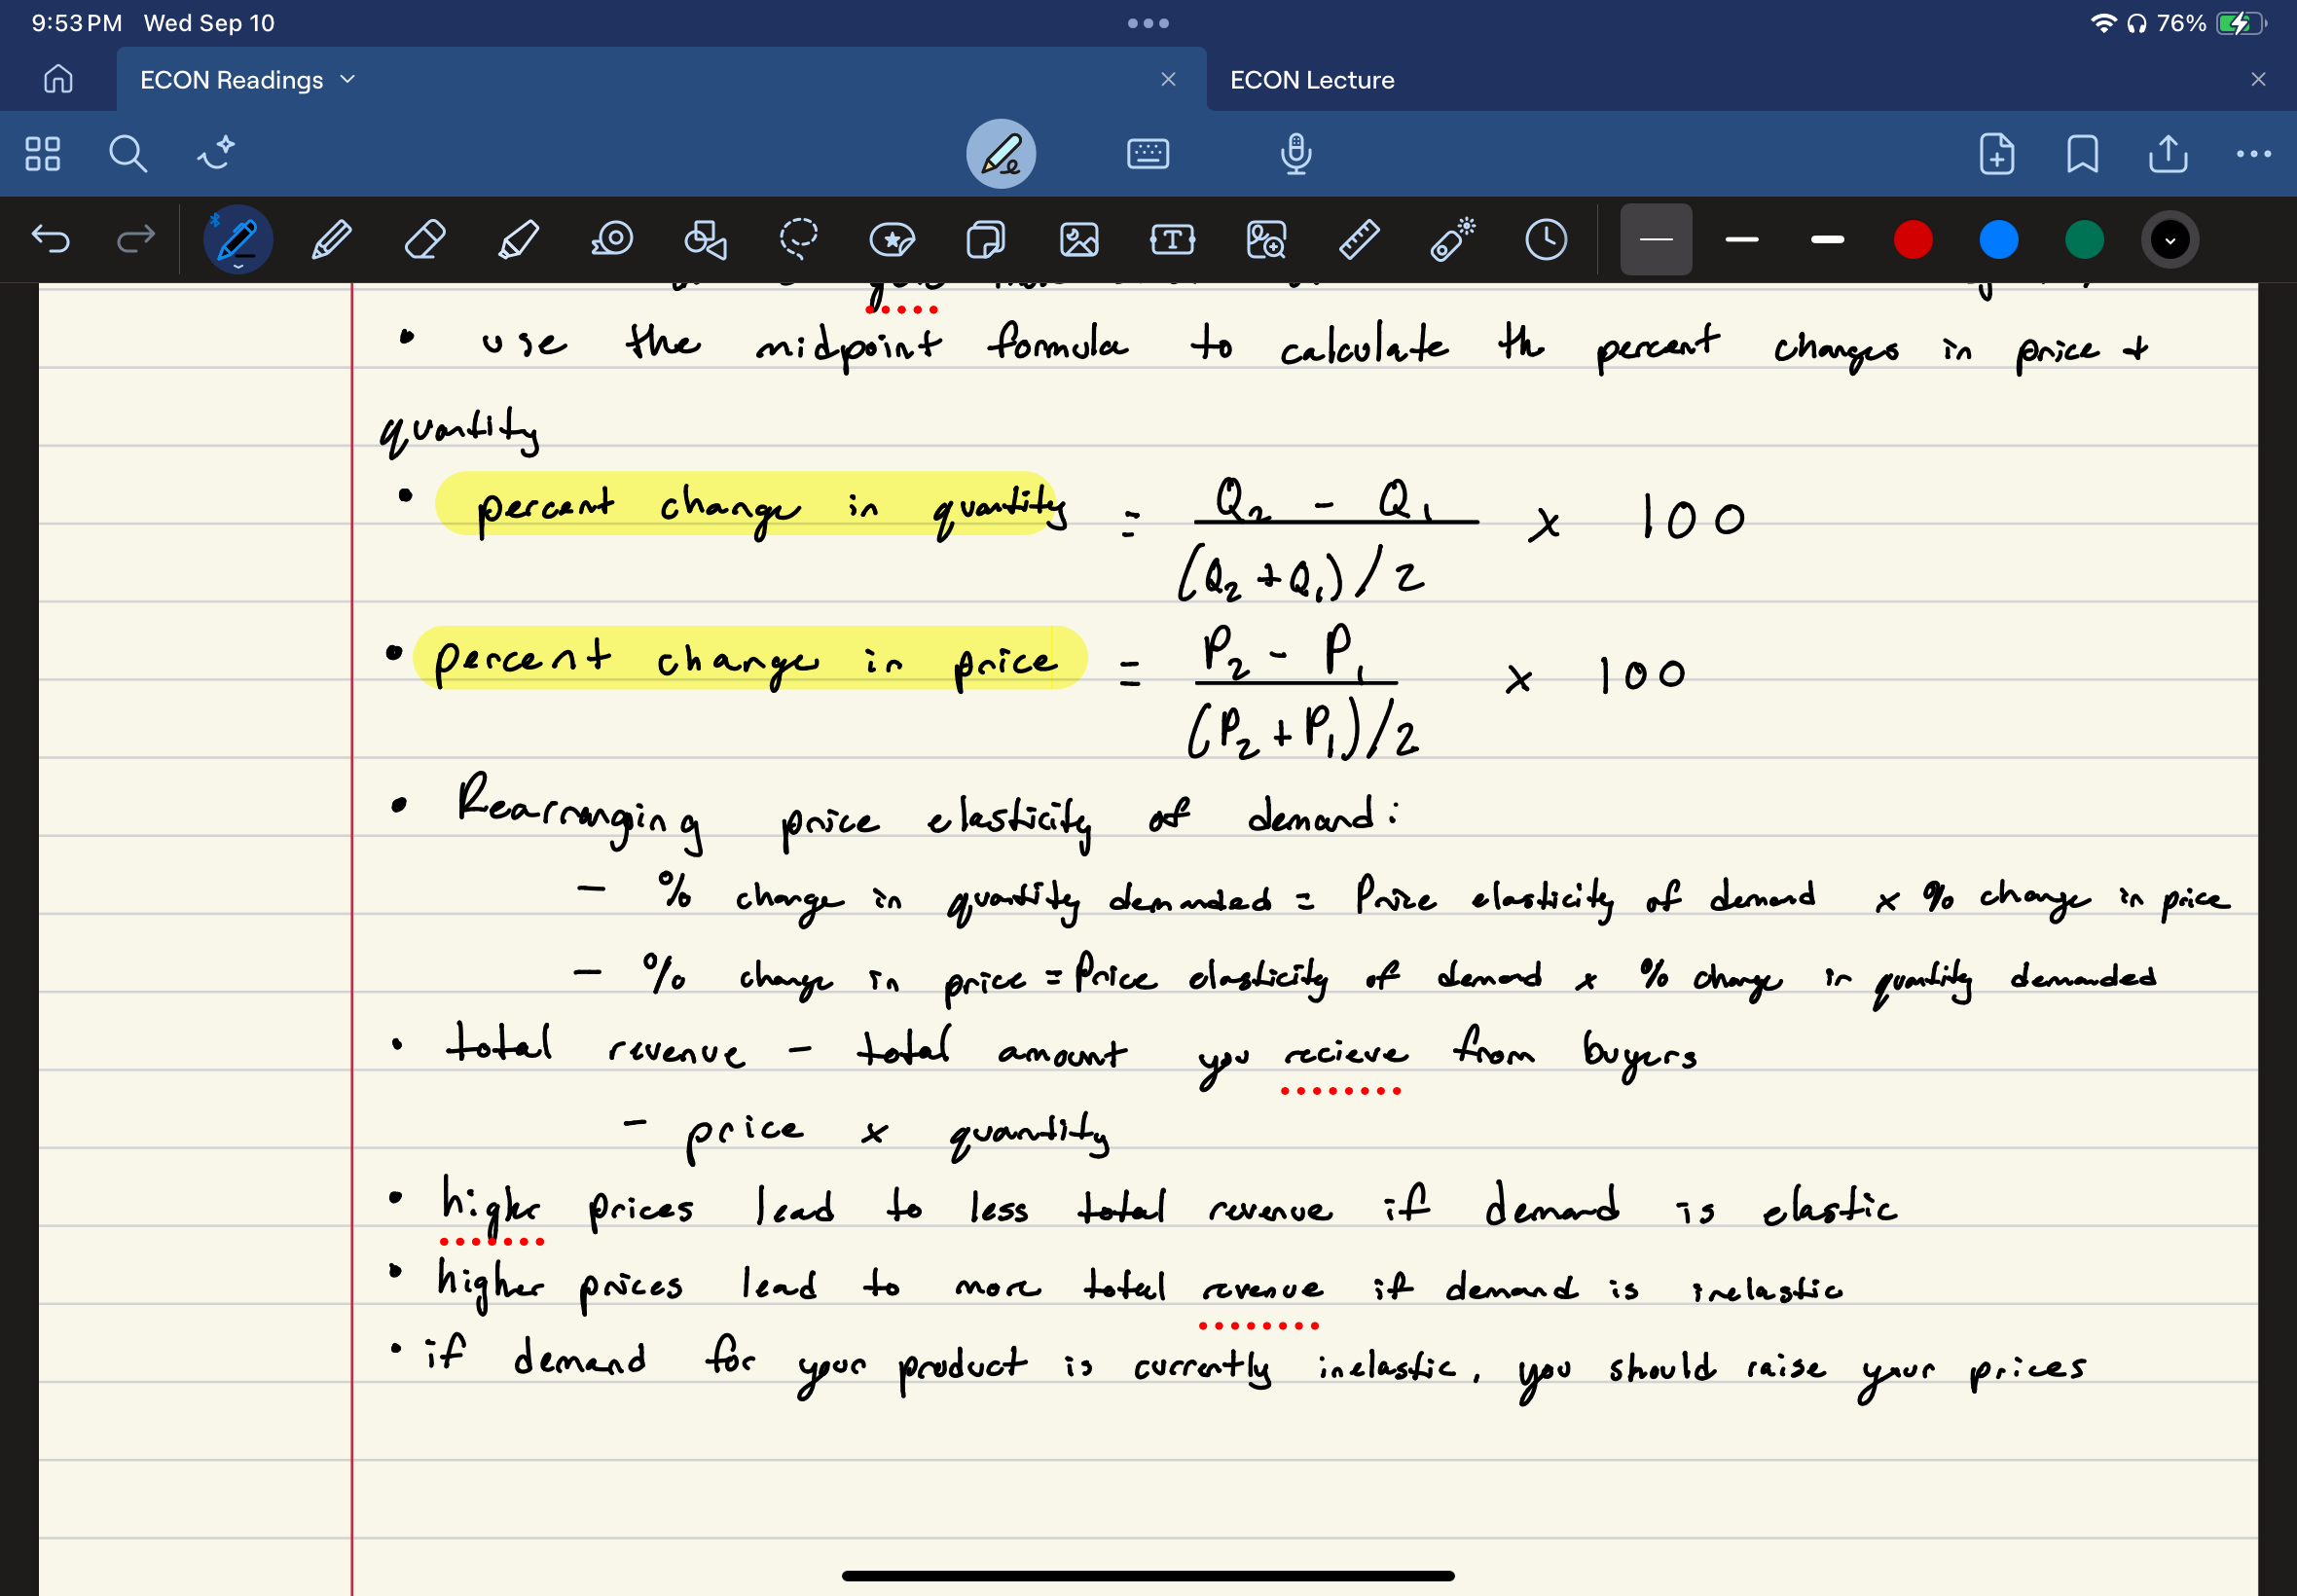 9:53 PM Wed Sep 10 76%
ECON Readings ECON Lecture
• use the midpoint formula to calculate th percent changes in price +
quantity
• percent change in quantity = Q₂ - Q₁ / (Q₂ + Q₁)/2 x 100
• percent change in price = P₂ - P₁ / (P₂ + P₁)/2 x 100
• Rearranging price elasticity of demand:
- % change in quantity demanded = Price elasticity of demand x % change in price
- % change in price = Price elasticity of demand x % change in quantity demanded
• total revenue - total amount you recieve from buyers
- price x quantity
• higher prices lead to less total revenue if demand is elastic
• higher prices lead to more total revenue if demand is inelastic
• if demand for your product is currently inelastic, you should raise your prices